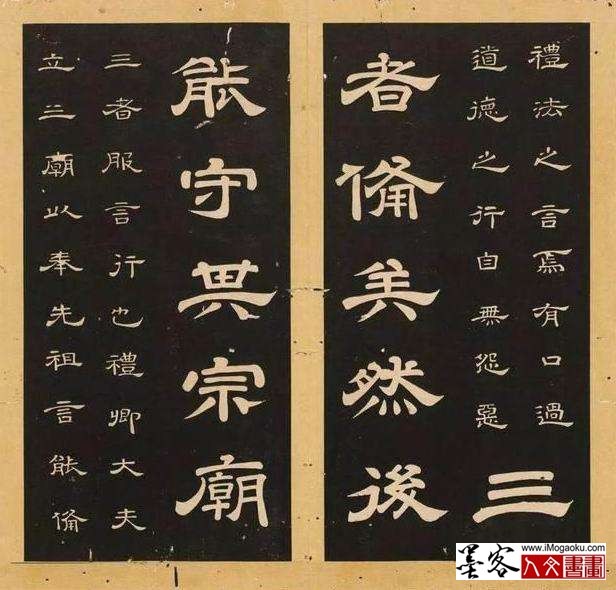 禮法之言焉有口過
道德之行自無怨惡
三
者備矣然後
能守其宗廟
三者服言行也禮卿大夫
立三廟以奉先祖言能備
墨客
www.iMogaoku.com
人文書畫